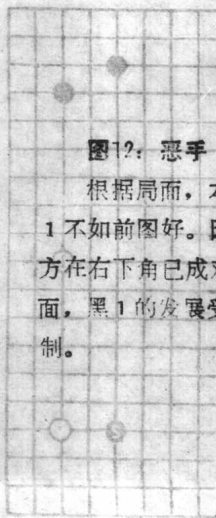 图12：恶手
根据局面，
1不如前图好。
方在右下角已成
面，黑1的发展受
制。